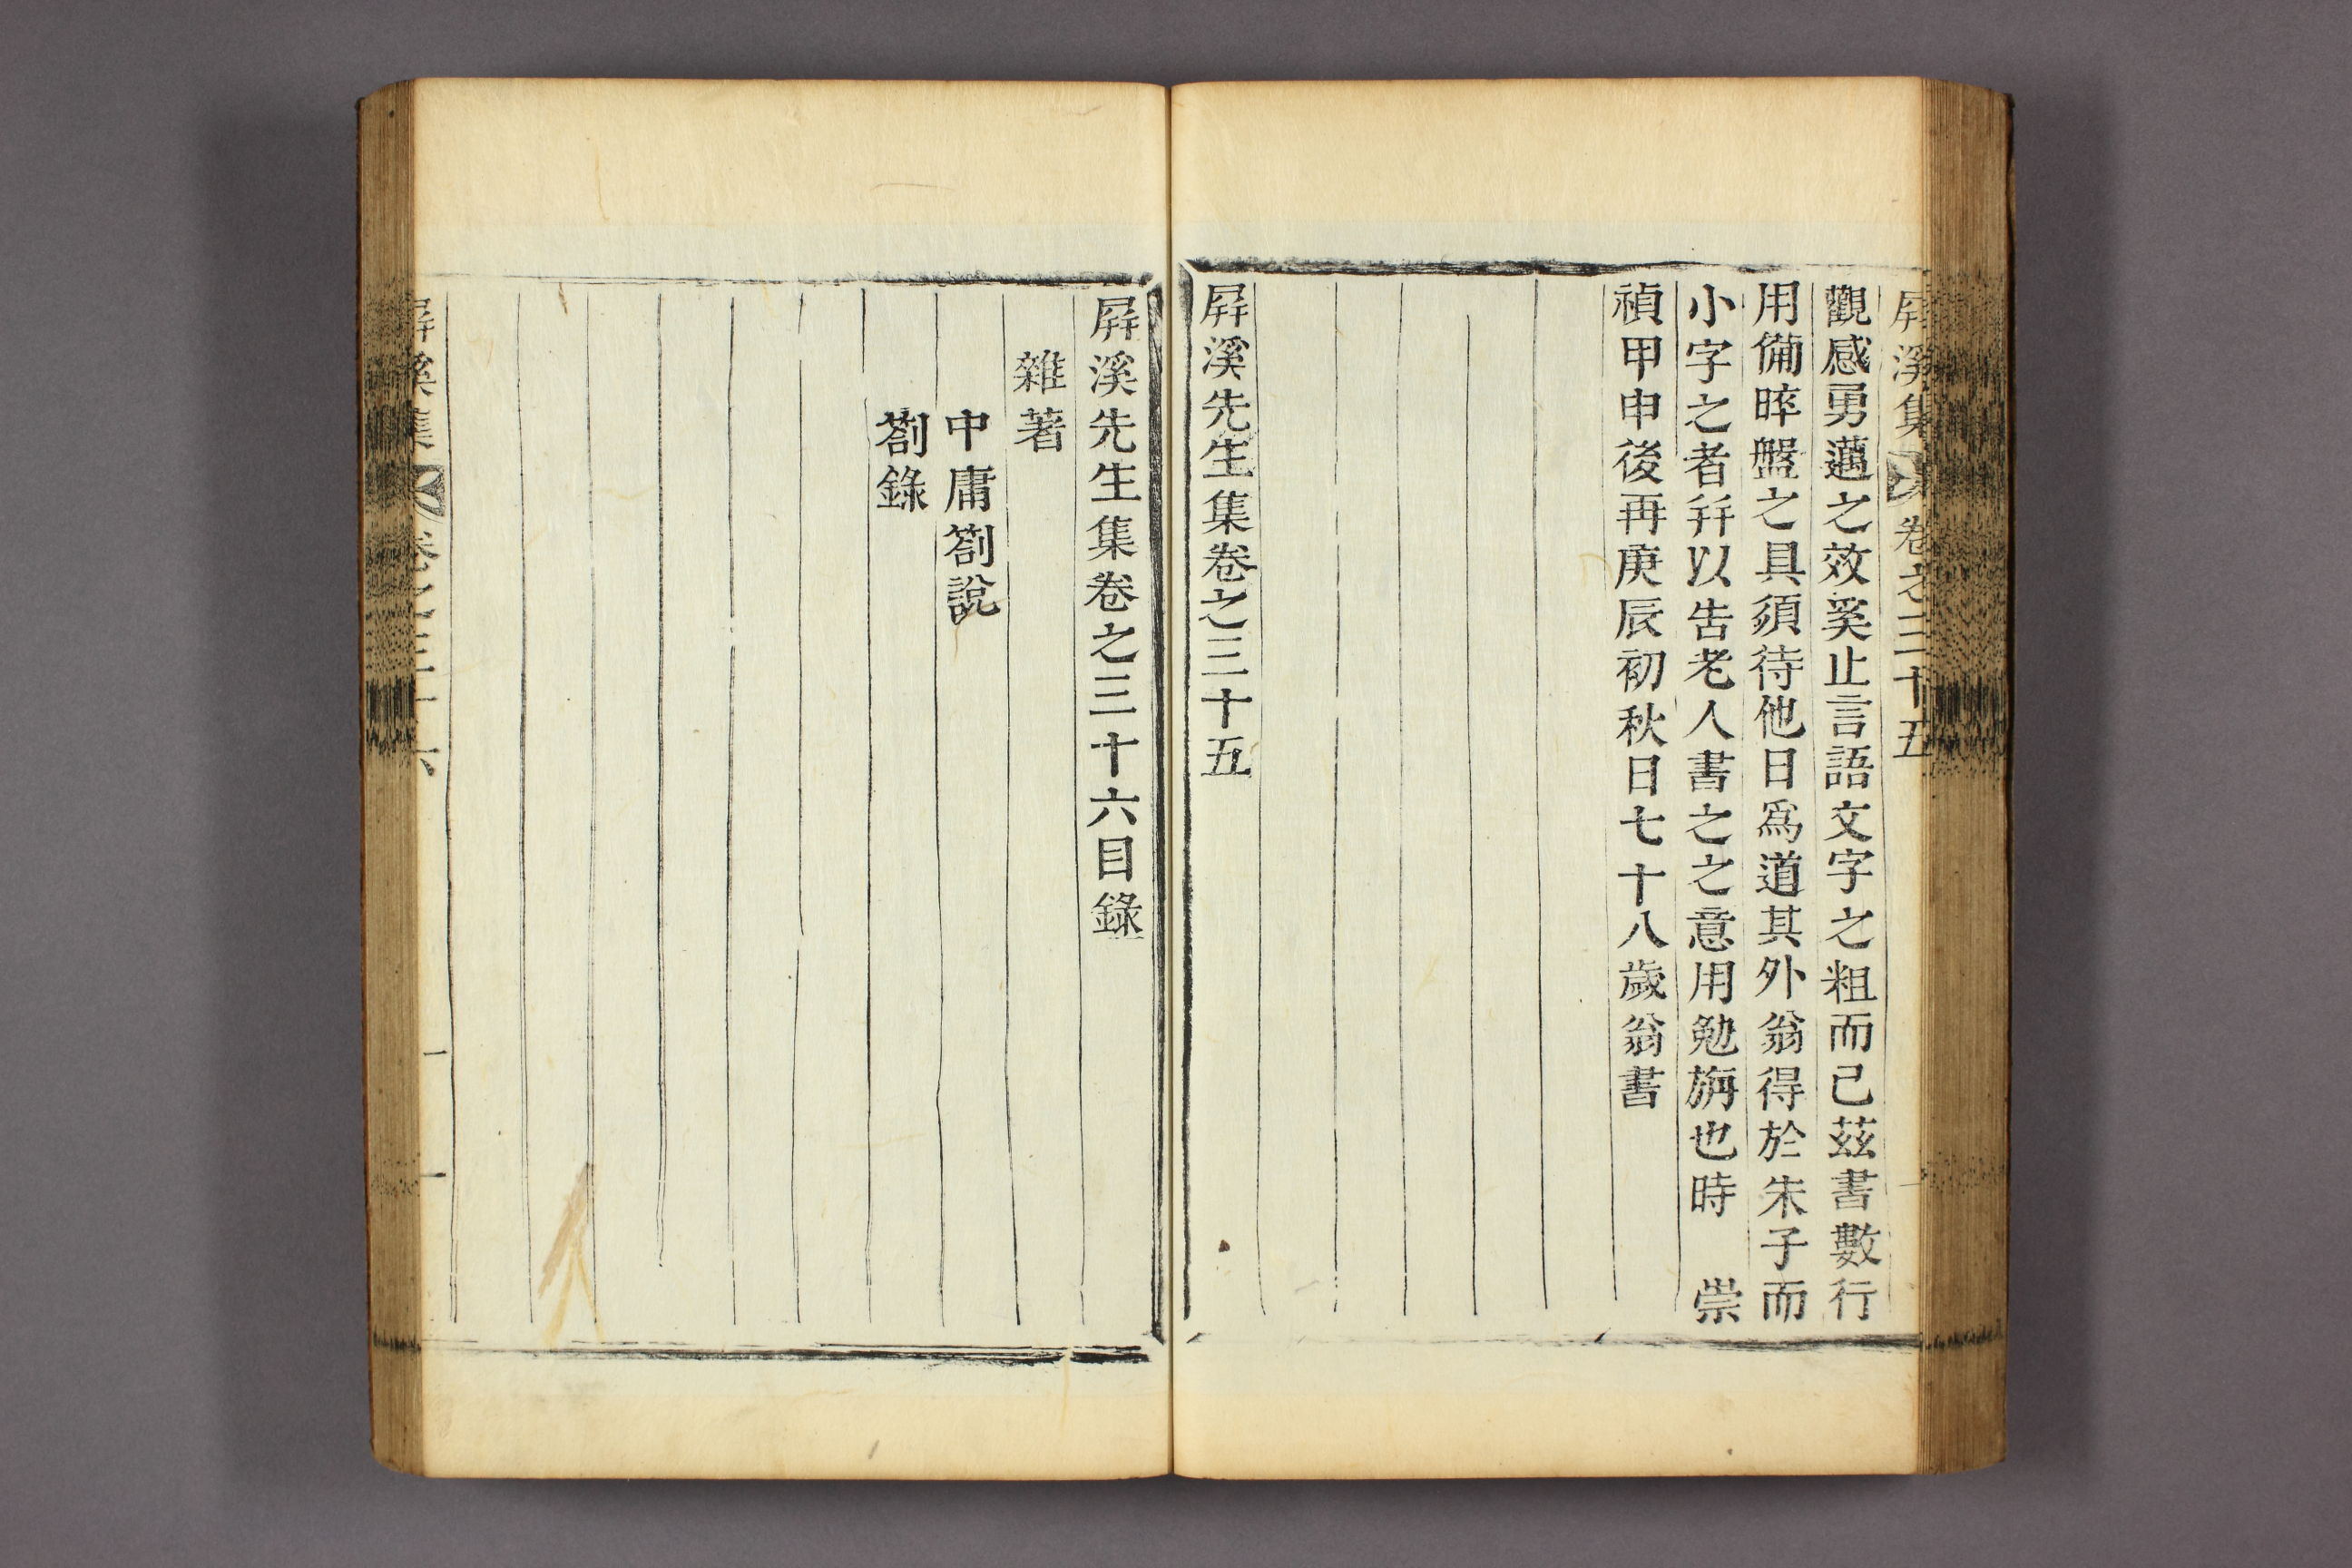 屛溪集 卷之三十五
觀感勇邁之效奚止言語文字之粗而已茲書數行
用備晬盤之具須待他日爲道其外翁得於朱子而
小字之者幷以告老人書之之意用勉旃也時 崇
禎甲申後再庚辰初秋日七十八歲翁書
屛溪先生集卷之三十五
屛溪先生集卷之三十六目錄
雜著
中庸劄說
劄錄
屛溪集 卷之三十六 一